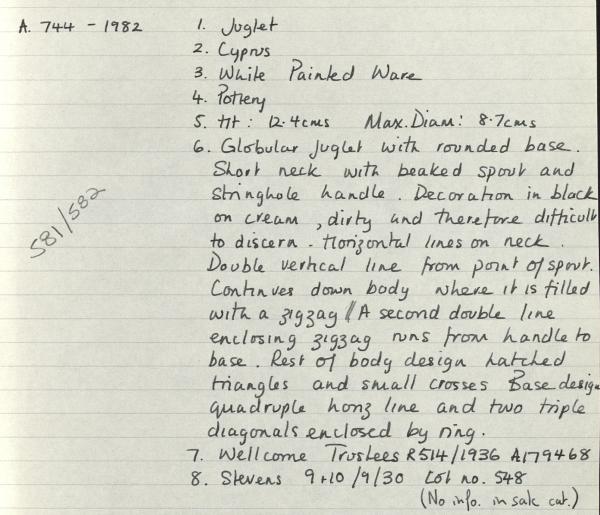 A. 744 - 1982
1. Juglet
2. Cyprus
3. White Painted Ware
4. Pottery
5. Ht: 12.4cms Max. Diam: 8.7cms
6. Globular juglet with rounded base.
Short neck with beaked spout and
stringhole handle. Decoration in black
on cream, dirty and therefore difficult
to discern. Horizontal lines on neck.
Double vertical line from point of spout.
Continues down body where it is filled
with a zigzag // A second double line
enclosing zigzag runs from handle to
base. Rest of body design hatched
triangles and small crosses Base design
quadruple honz line and two triple
diagonals enclosed by ring.
7. Wellcome Trustees R514/1936 A179468
8. Stevens 9+10/9/30 Lot no. 548
(No info. in sale cat.)
581/582